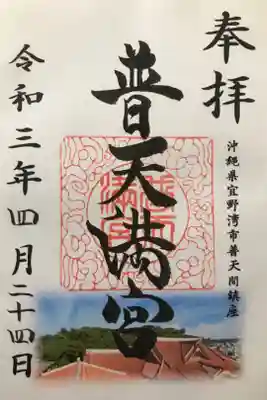 奉拝
沖縄県宜野湾市普天間鎮座
普天満宮
令和三年四月二十四日